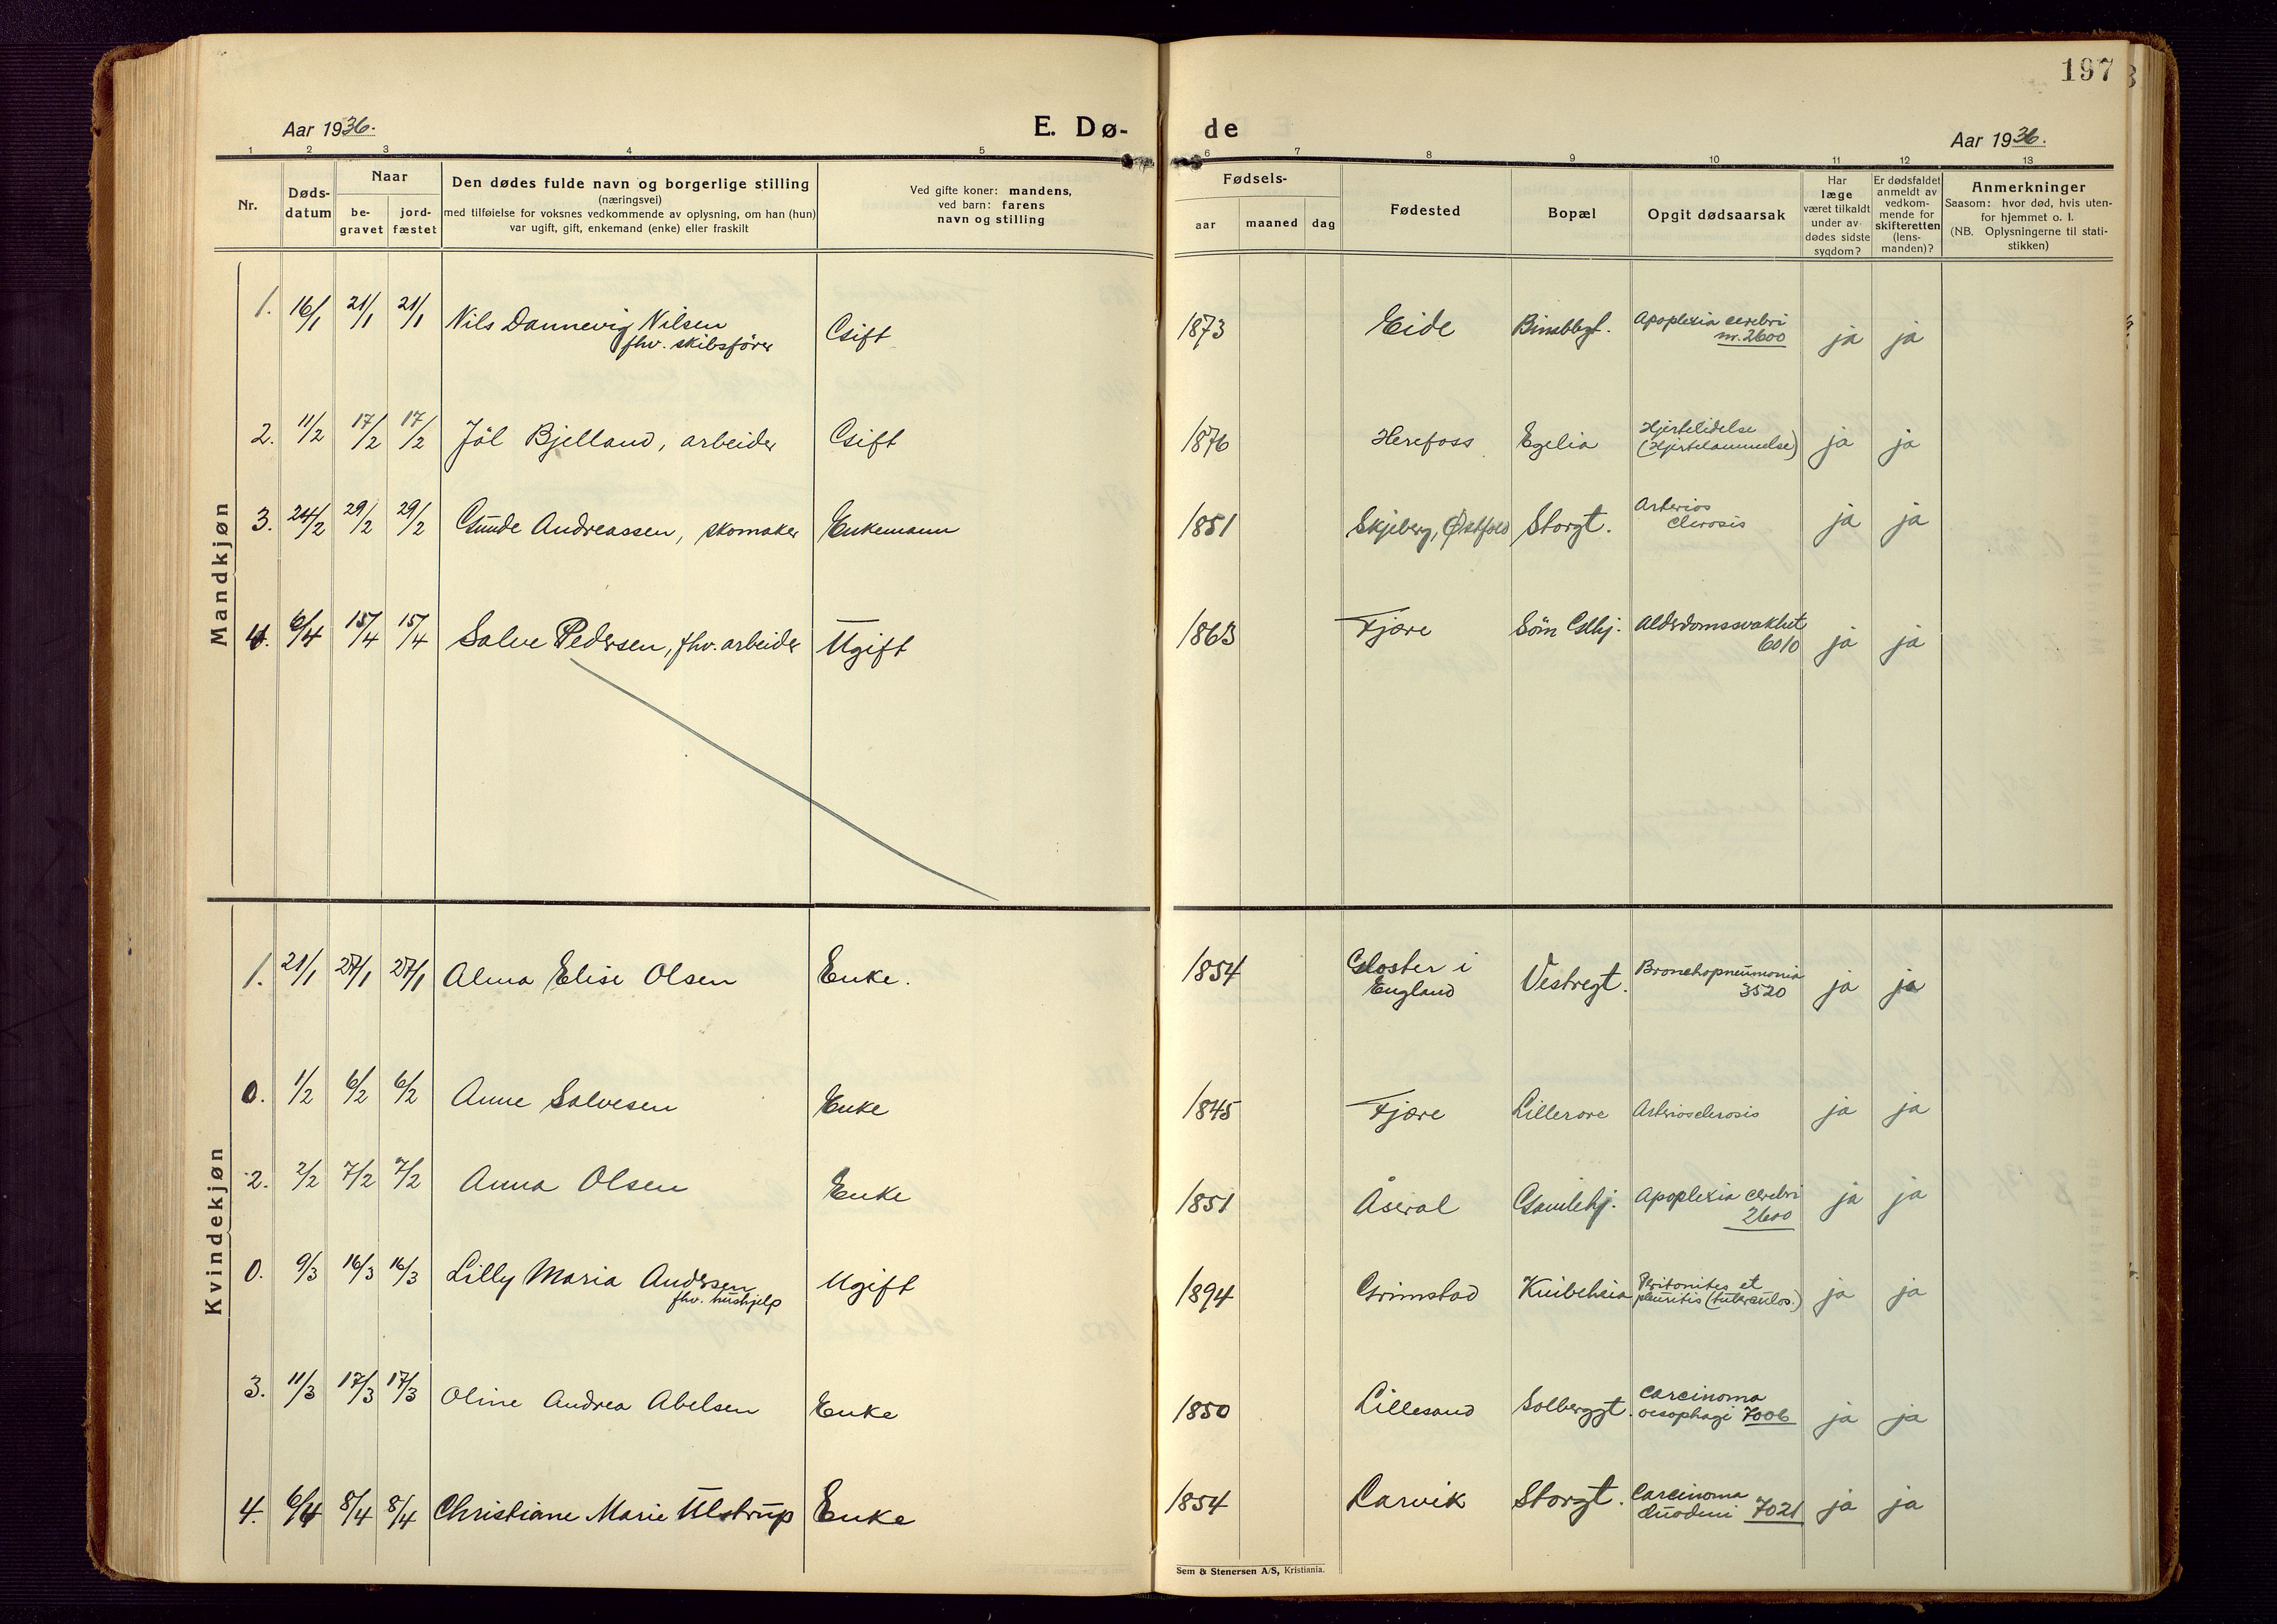 197
Aar 1936.
E. Dø-
de
Aar 1936.
1 2 3 4 5 6 7 8 9 10 11 12 13
Nr.
Døds-
datum
Naar
be-
gravet
jord-
fæstet
Den dødes fulde navn og borgerlige stilling
(næringsvei)
med tilføielse for voksnes vedkommende av oplysning, om han (hun)
var ugift, gift, enkemand (enke) eller fraskilt
Ved gifte koner: mandens,
ved barn: farens
navn og stilling
Fødsels-
aar maaned dag
Fødested
Bopæl
Opgit dødsaarsak
Har
læge
været tilkaldt
under av-
dødes sidste
sygdom?
Er dødsfaldet
anmeldt av
vedkom-
mende for
skifteretten
(lens-
manden)?
Anmerkninger
Saasom: hvor død, hvis uten-
for hjemmet o. l.
(NB. Oplysningerne til stati-
stikken)
Mandkjøn
1. 16/1 21/1 21/1 Nils Dannevig Nilsen
fhv. skibsfører
Gift 1873 Eide Apoplexia cerebri
nr. 2600
ja ja
2. 11/2 17/2 17/2 Jôl Bjelland, arbeider Gift 1876 Herefoss Egelia Hjertelidelse
(Hjertelammelse)
ja ja
3. 24/2 29/2 29/2 Gunde Andreassen, skomaker Enkemann 1851 Skjeberg, Østfold Storgt. Arterios
clerosis
ja ja
4. 6/4 15/4 15/4 Salve Pedersen, fhv. arbeider Ugift 1863 Fjære Söm Glhj. Alderdomssvakhet
6010
ja ja
Kvindekjøn
1. 21/1 27/1 27/1 Alma Elise Olsen Enke. 1854 Gloster i
England
Vestregt. Bronchopneumonia
3520
ja ja
0. 1/2 6/2 6/2 Anne Salvesen Enke 1845 Fjære Lillerore Arteriosclerosis ja ja
2. 2/2 7/2 7/2 Anna Olsen Enke 1851 Åseral Gamlehj. Apoplexia cerebri
2600
ja ja
0. 9/3 16/3 16/3 Lilly Maria Andersen
fhv. hushjelp
Ugift 1894 Grimstad Kuibeheia Peritonites et
pleuritis (tuberculos.)
ja ja
3. 11/3 17/3 17/3 Oline Andrea Abelsen Enke 1850 Lillesand Solberggt. Carcinoma
oesophagi 7006
ja ja
4. 6/4 8/4 8/4 Christiane Marie Ulstrup Enke 1854 Larvik Storgt. Carcinoma
duodeni 7021
ja ja
Sem & Stenersen A/S, Kristiania.